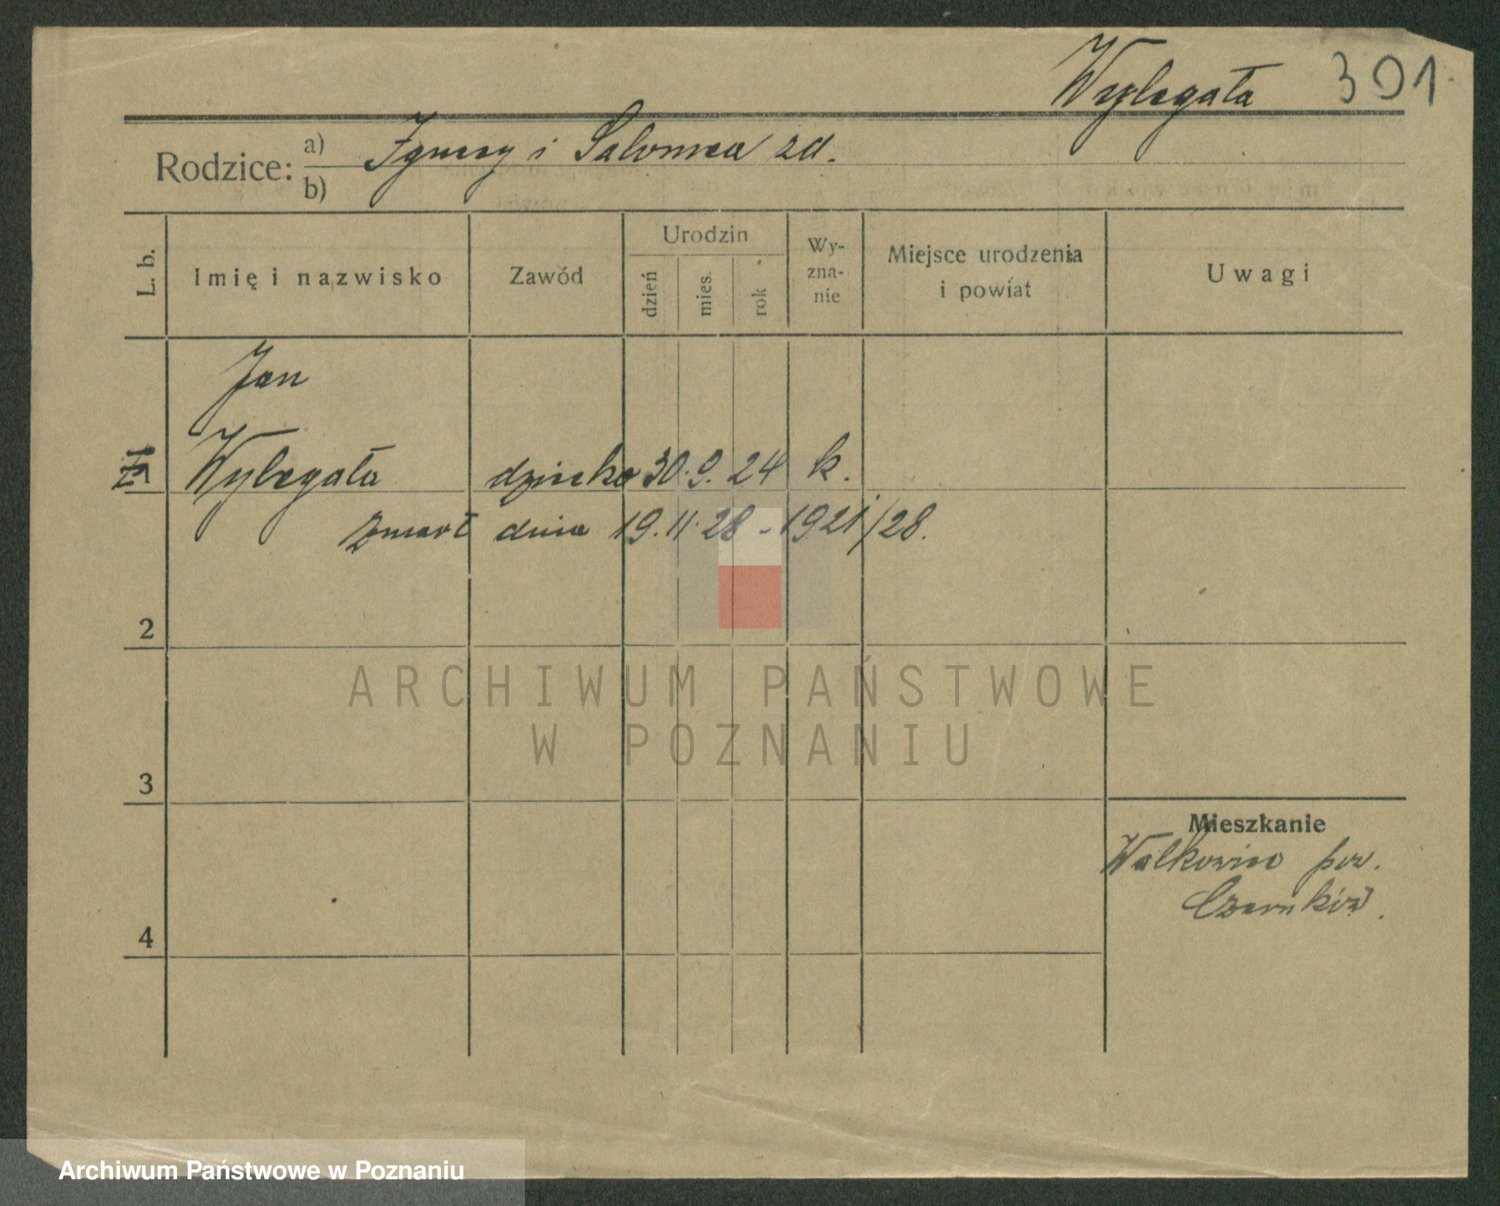 Wylegała 301
Rodzice: a) Ignacy i Salomea zd.
b)
L. b. Imię i nazwisko Zawód Urodzin dzień mies. rok Wy-zna-nie Miejsce urodzenia i powiat Uwagi
Jan
Wylegała dziecko 30. 9. 24 k.
zmarł dnia 19. 11. 28 - 1921/28.
2
3
4
Mieszkanie
Walkowice pow.
Czarnków.
ARCHIWUM PAŃSTWOWE
W POZNANIU
Archiwum Państwowe w Poznaniu